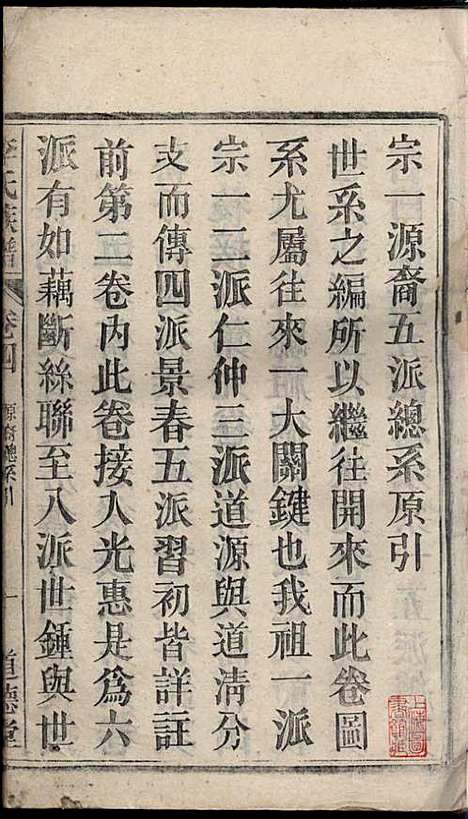 宗一源裔五派總系原引
世系之編所以繼往開來而此卷圖
系尤屬往來一大關鍵也我祖一派
宗一二派仁仲三派道源與道清分
支而傳四派景春五派習初皆詳註
前第二卷內此卷接入光惠是爲六
派有如藕斷絲聯至八派世鍾與世
氏族譜 卷四 原裔總系引 一 道德堂